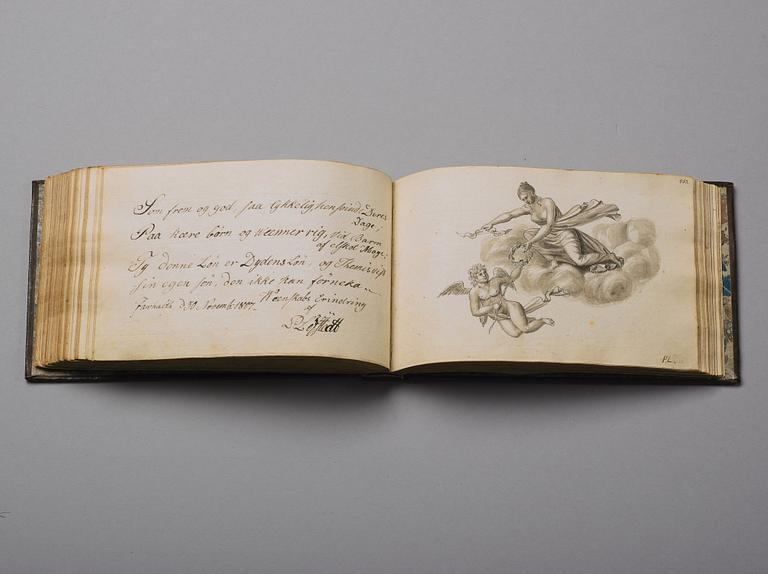 Som from og god, saa lykkelig henswind Deres
Dage;
Saa kære børn og wenner rig, wid Barm
af elsket Mage;
Ty denne Løn er Dydens Løn, og Themis wil
sin egen søn, den ikke kan fornekte
Farnaets D. 30. Novemb. 1807. Wenskabs Erindring
af
P.L.